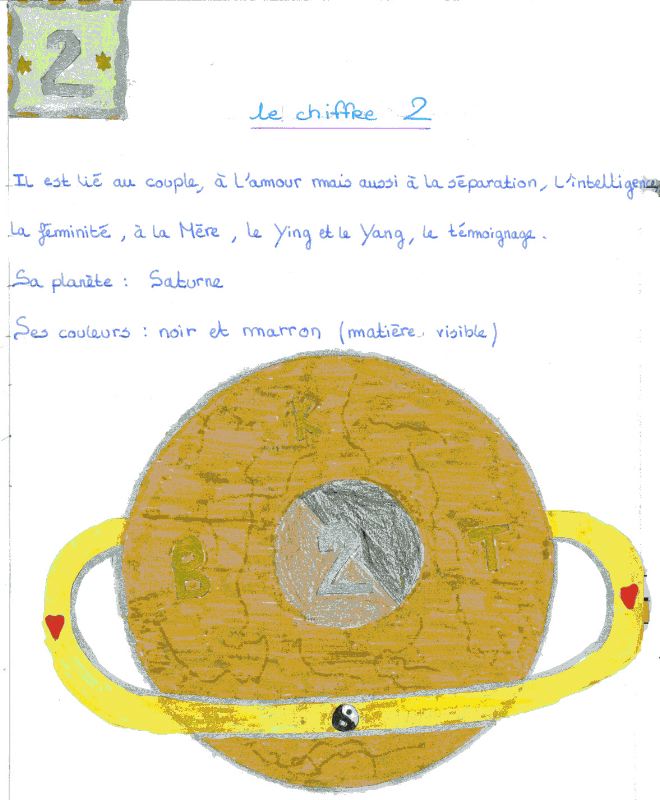 2
le chiffre 2
Il est lié au couple, à l'amour mais aussi à la séparation, l'intelligence,
la féminité, à la Mère, le Ying et le Yang, le témoignage.
Sa planète : Saturne
Ses couleurs : noir et marron (matière visible)
K
B 2 T